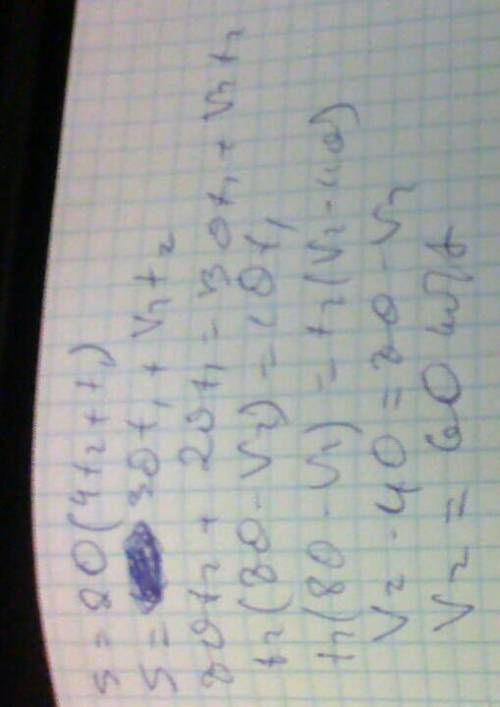 S = 20(4t₂ + t₁)
S = 30t₁ + V₂t₂
80t₂ + 20t₁ = 30t₁ + V₂t₂
t₂(80 - V₂) = 10t₁
t₂(80 - V₂) = t₂(V₂ - 40)
V₂ - 40 = 80 - V₂
V₂ = 60 км/ч